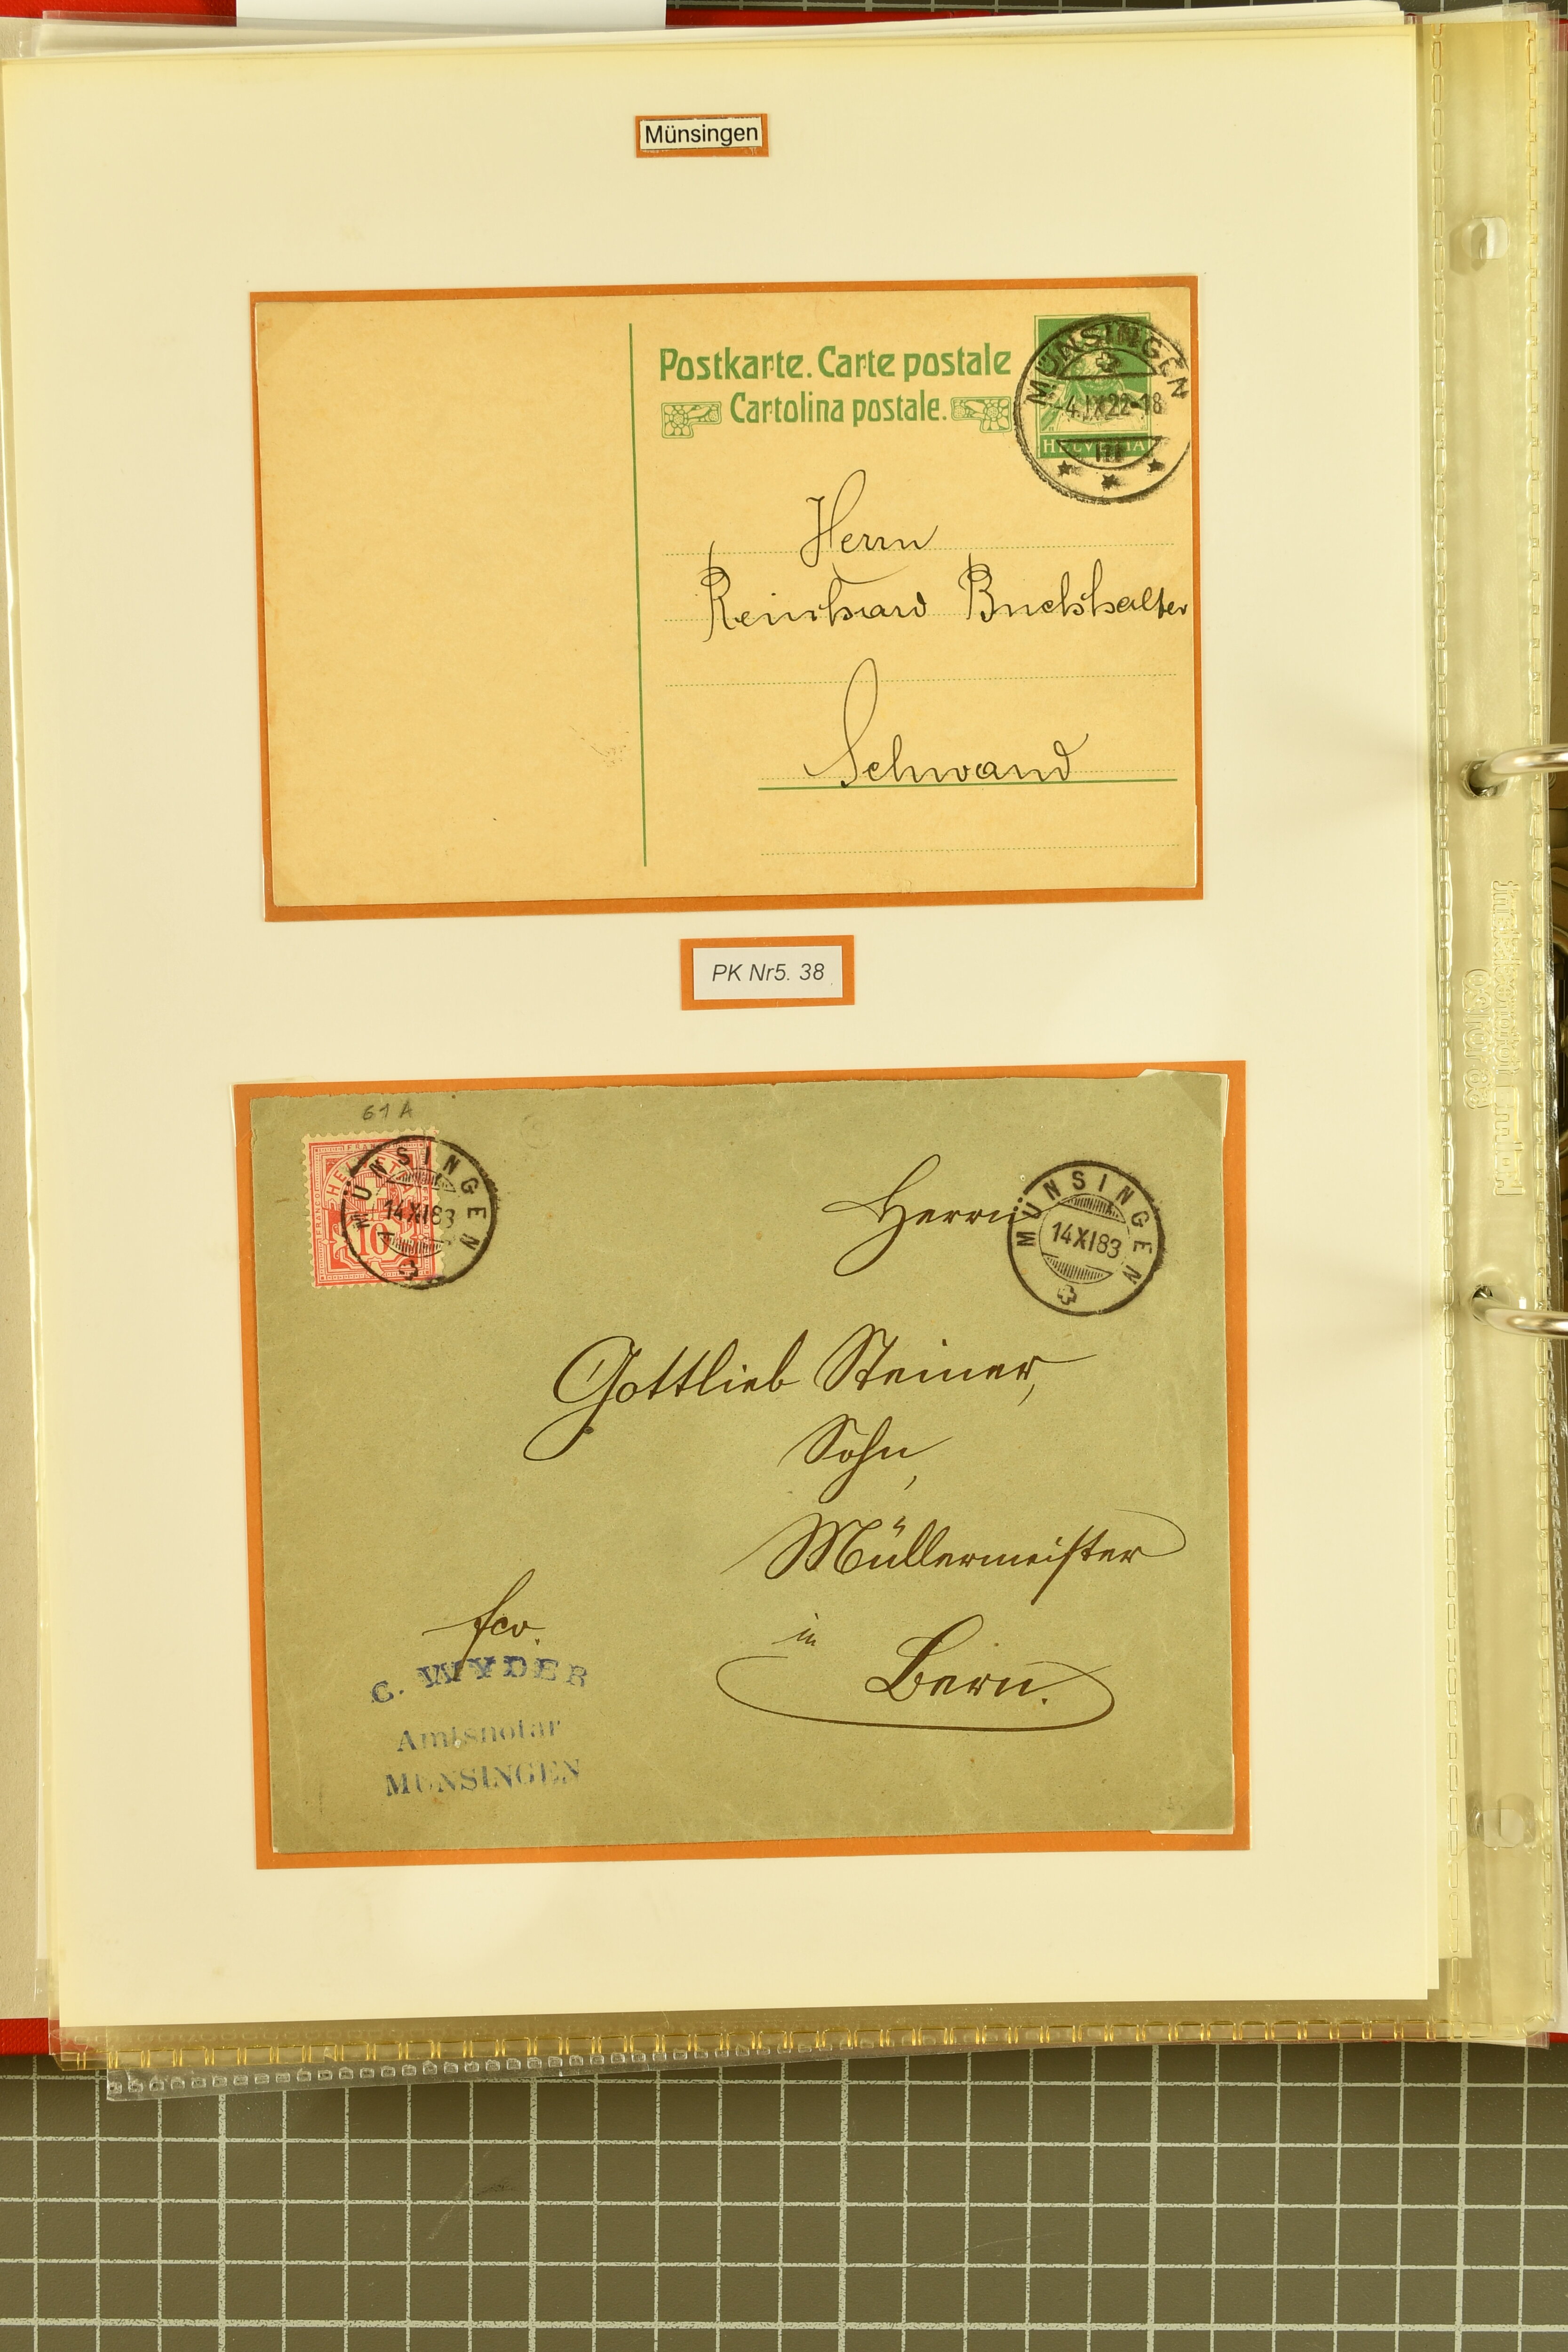 Münsingen
Postkarte. Carte postale
Cartolina postale.
MÜNSINGEN
-4.IX.22-18
HELVETIA
III
Herrn
Reinhard Buchhalter
Schwand
PK Nr5. 38
61 A
FRANCO
HELVETIA
10
MÜNSINGEN
14 XI 83
MÜNSINGEN
14 XI 83
Herrn
Gottlieb Steiner,
Sohn,
Müllermeister
in
Bern.
fco.
C. WYDER
Amtsnotar
MÜNSINGEN